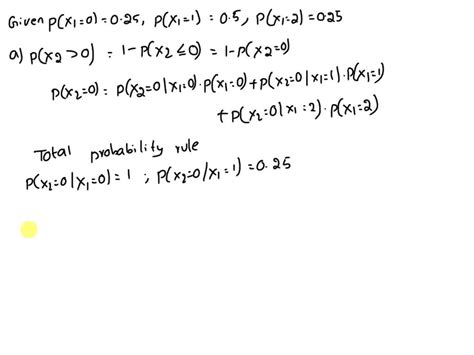 Given P(X₁=0)=0.25, P(X₁=1)=0.5, P(X₁=2)=0.25
a) P(X₂>0) = 1-P(X₂≤0) = 1-P(X₂=0)
P(X₂=0)= P(X₂=0|X₁=0)·P(X₁=0)+P(X₂=0|X₁=1)·P(X₁=1)
+P(X₂=0|X₁=2)·P(X₁=2)
Total probability rule
P(X₂=0|X₁=0)=1 ; P(X₂=0/X₁=1)=0.25